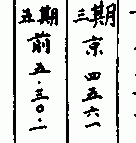 三期
京四五六一
五期
前五・三〇・一